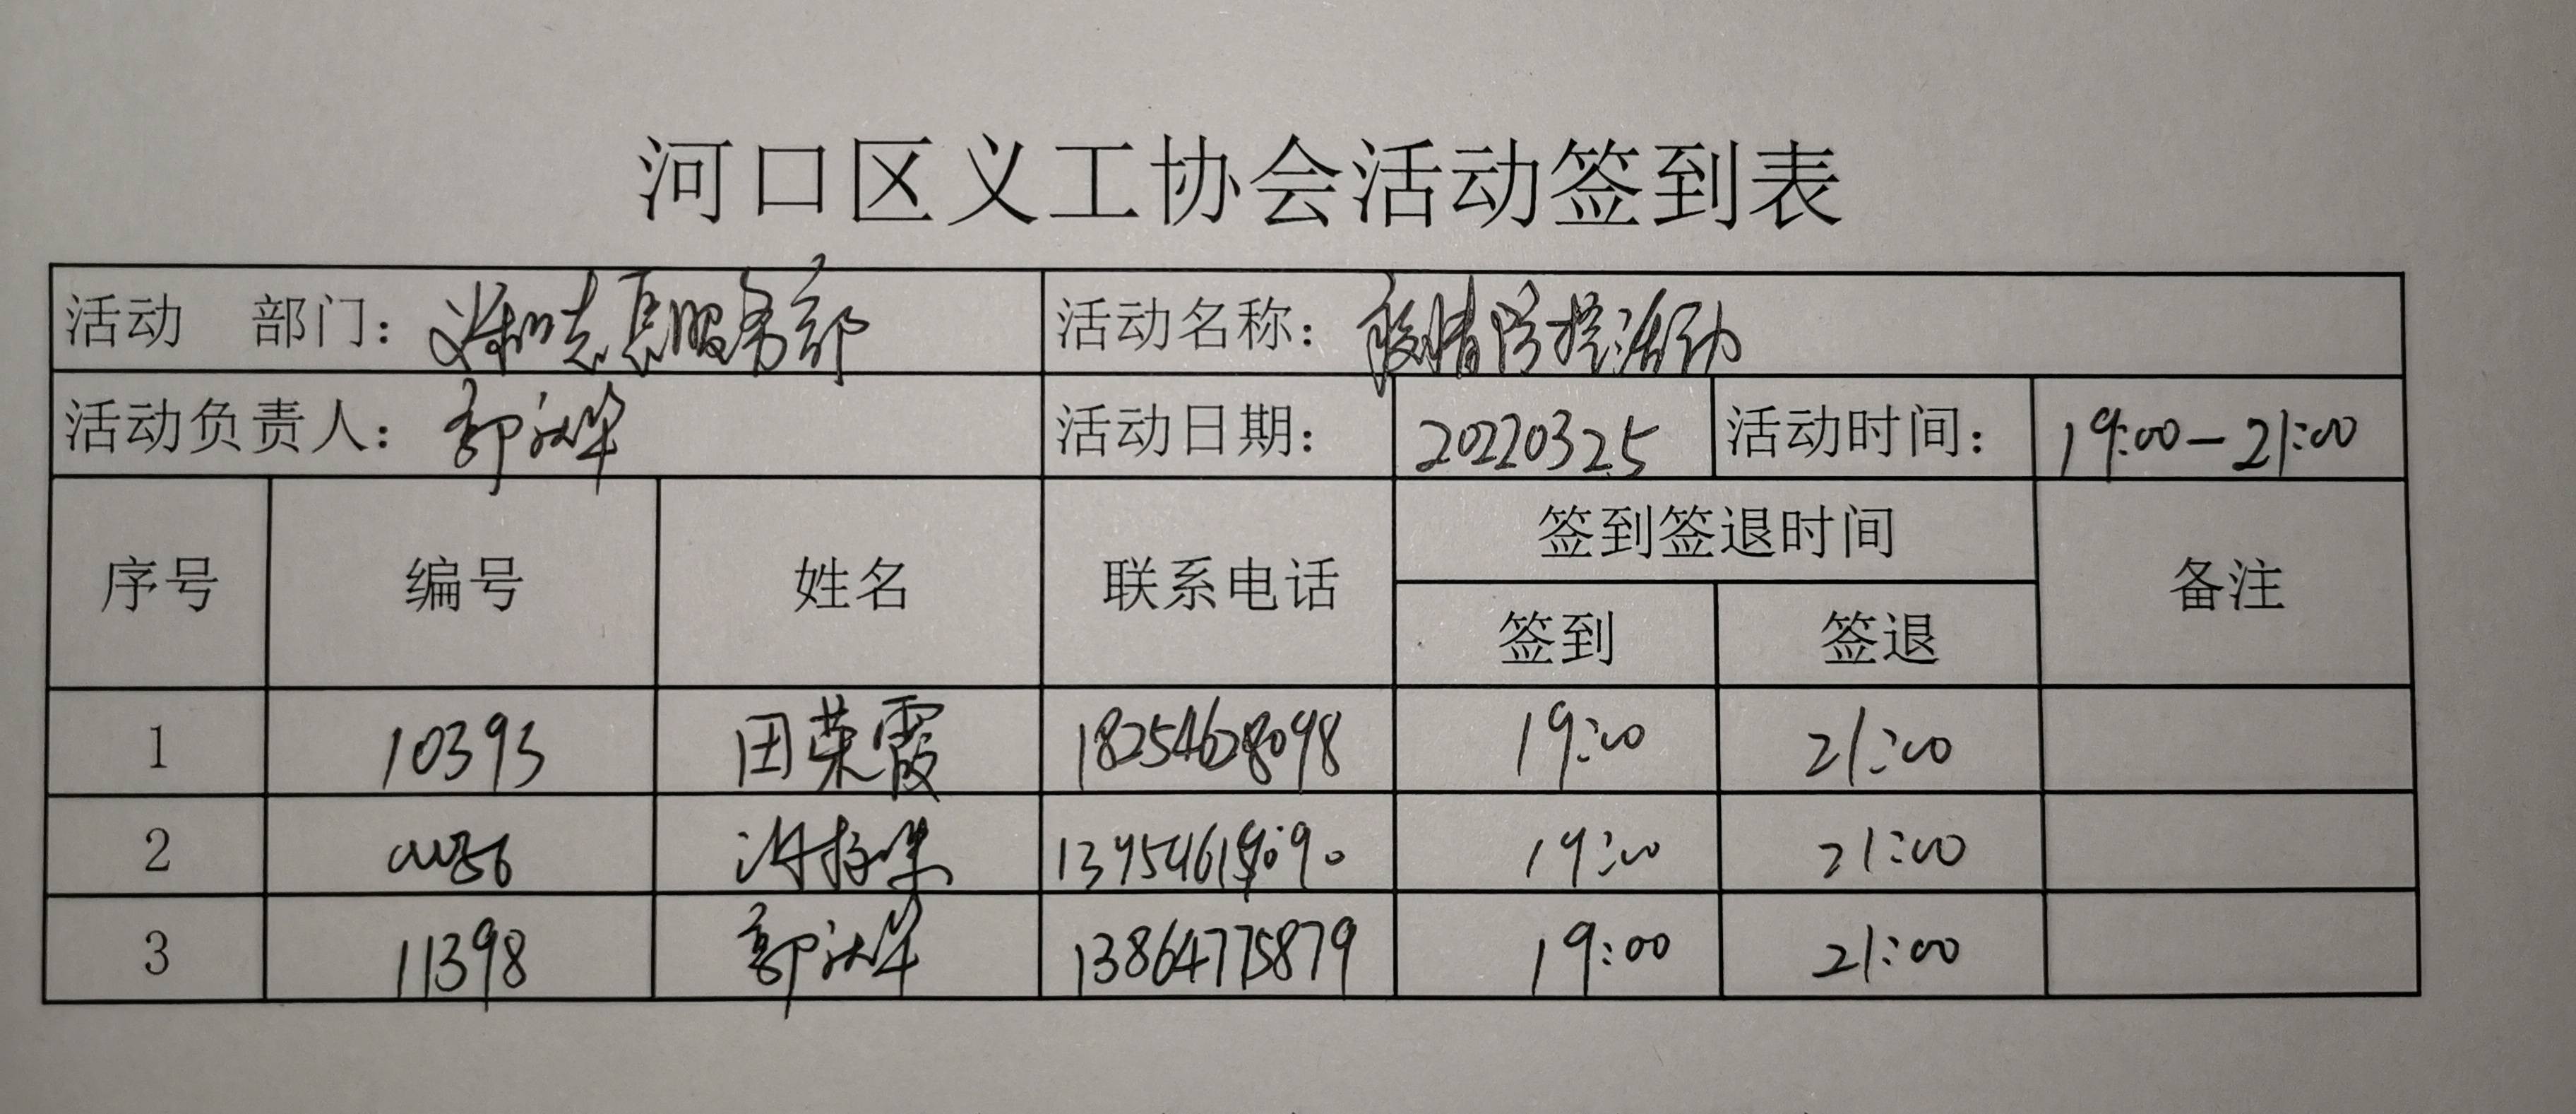 河口区义工协会活动签到表
活动 部门： 义和志愿服务部 活动名称： 疫情防控活动
活动负责人： 郭 活动日期： 20220325 活动时间： 19:00—21:00
序号 编号 姓名 联系电话 签到签退时间 备注
签到 签退
1 10393 田荣霞 18254628098 19:00 21:00
2 19:00 21:00
3 11398 郭 13864775879 19:00 21:00